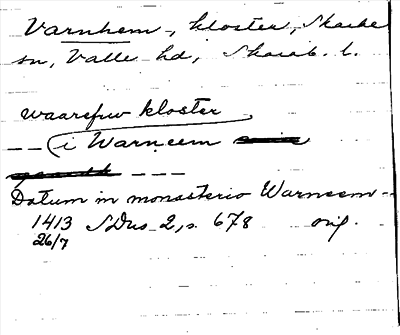 Varnhem, kloster, Skarke
sn, Valle hd, Skarab. l.
waarsfrw kloster
-- i Warneem
---
Datum in monasterio Warneem -
1413 SDns 2, s. 678 orig.
26/7